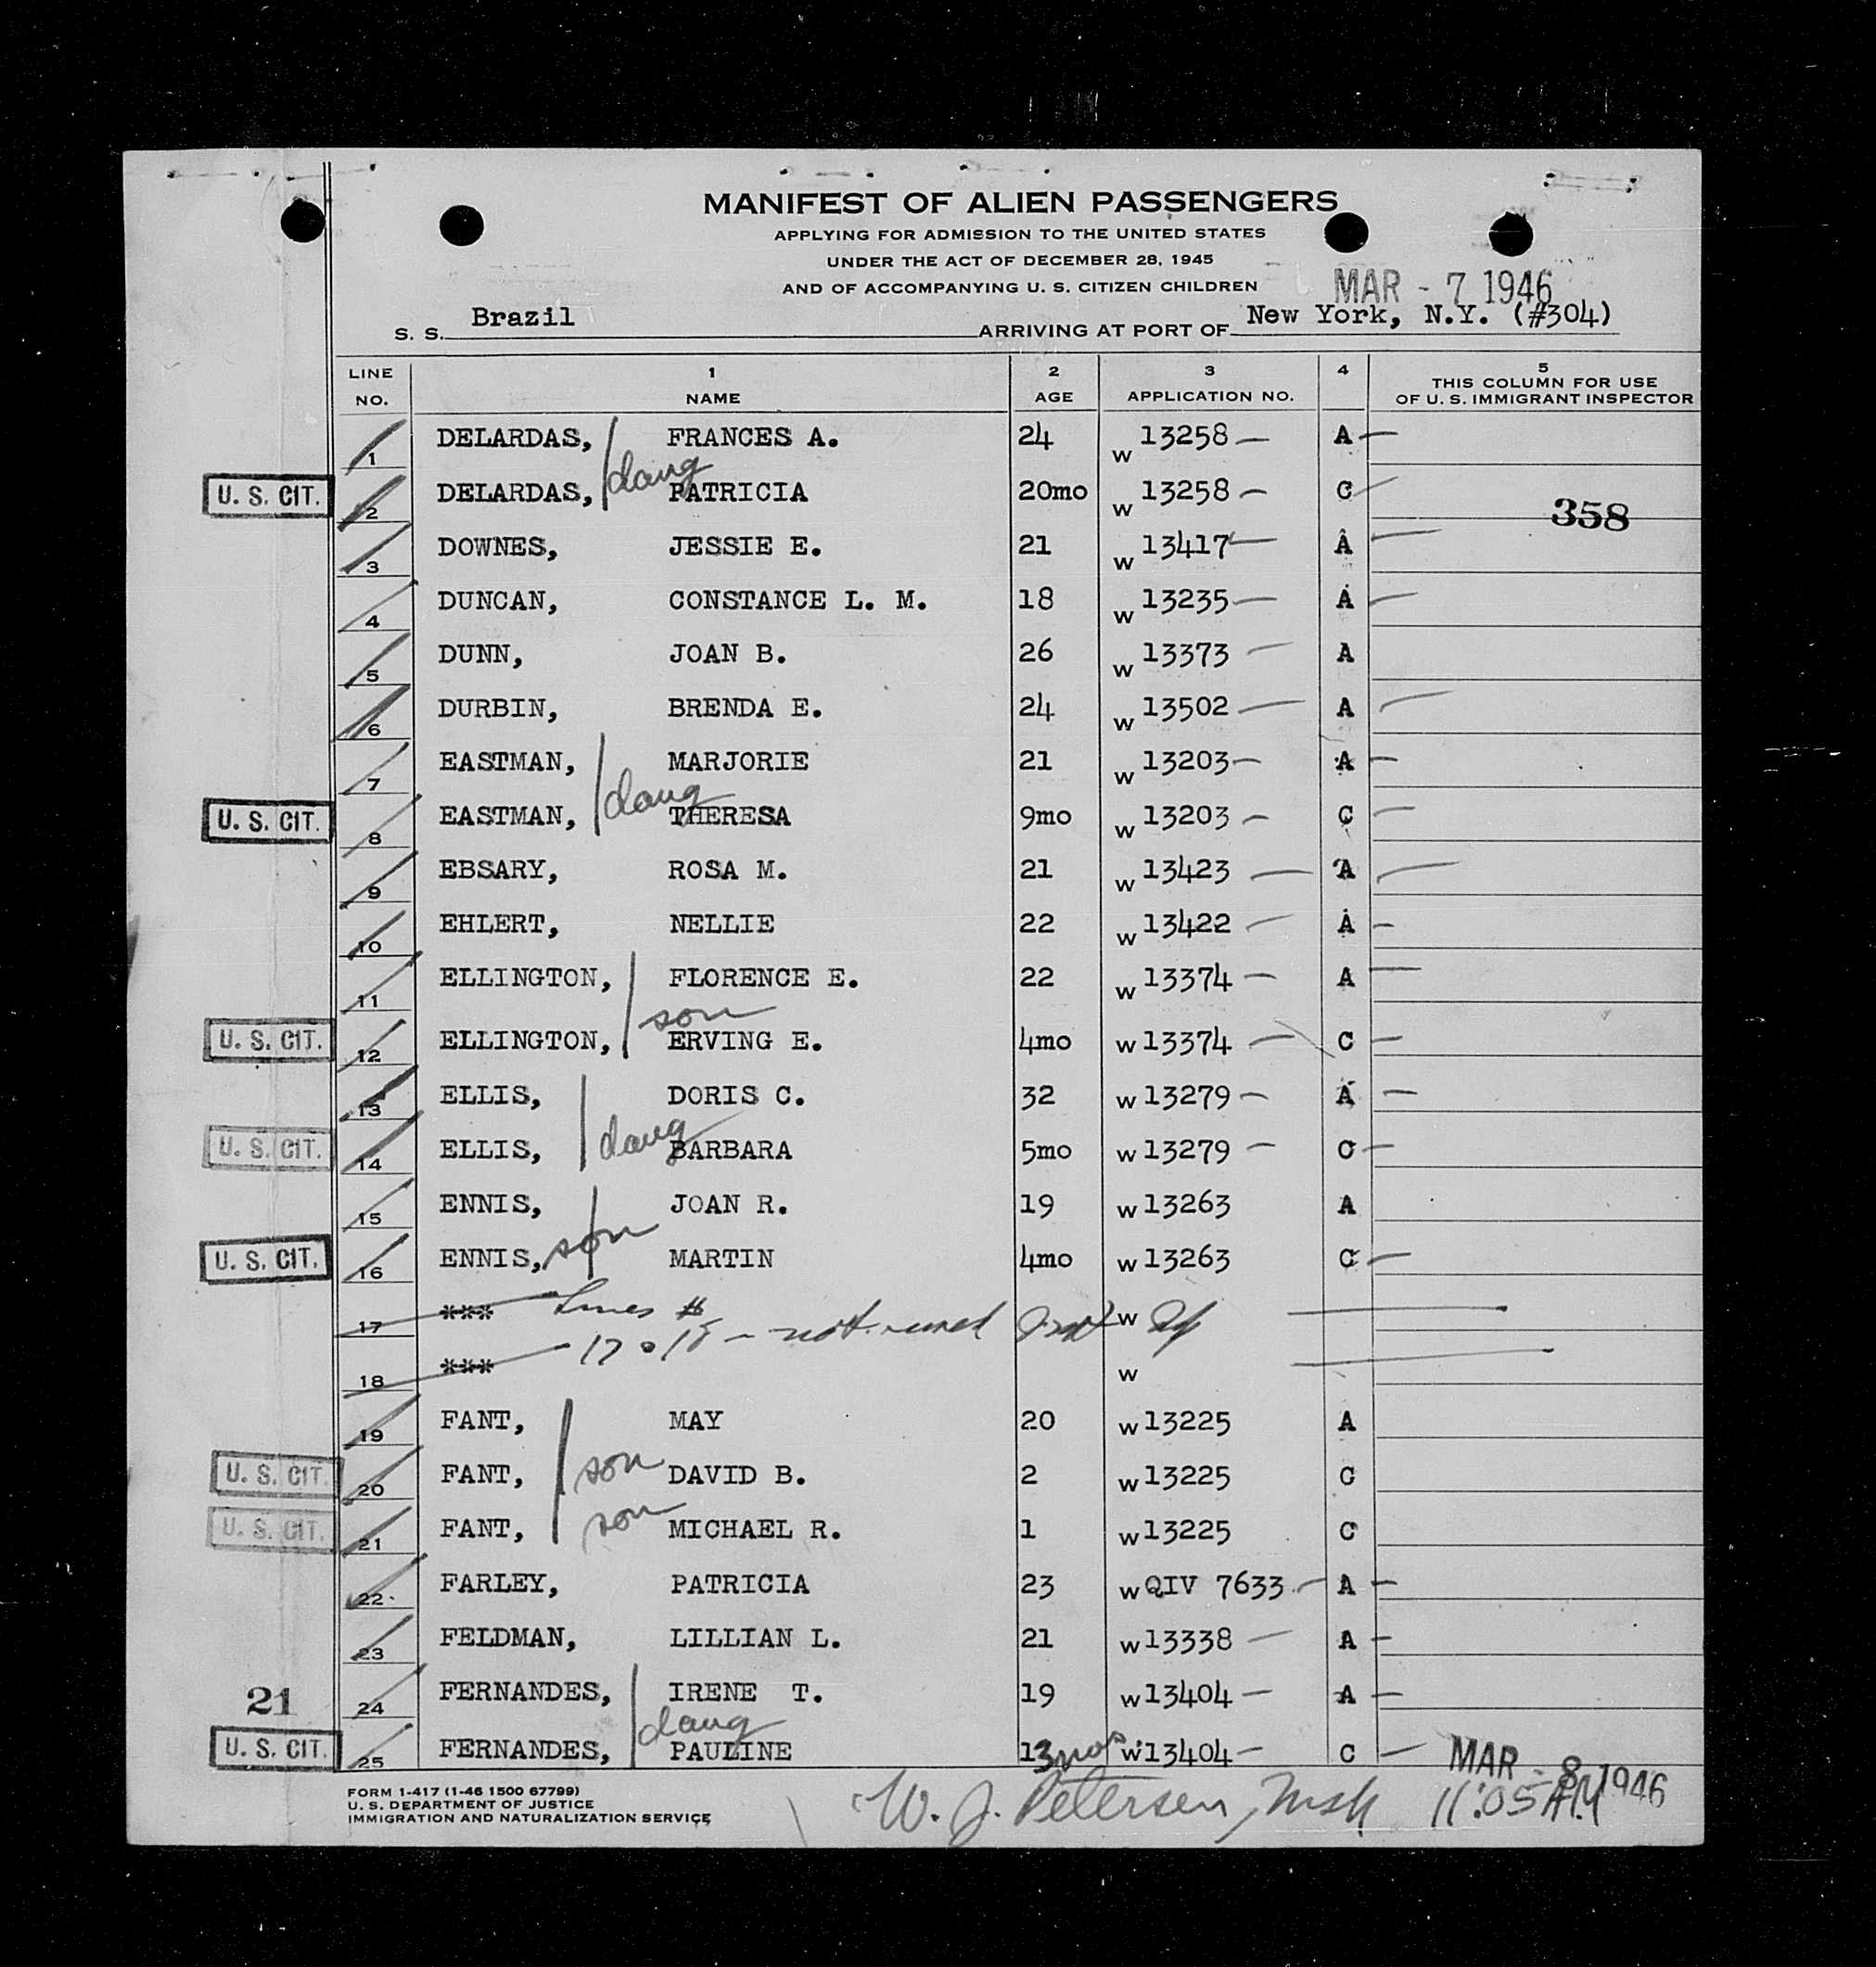 MANIFEST OF ALIEN PASSENGERS
APPLYING FOR ADMISSION TO THE UNITED STATES
UNDER THE ACT OF DECEMBER 28, 1945
AND OF ACCOMPANYING U. S. CITIZEN CHILDREN
MAR - 7 1946
S. S. Brazil ARRIVING AT PORT OF New York, N.Y. (#304)
LINE NO. 1 NAME 2 AGE 3 APPLICATION NO. 4 5 THIS COLUMN FOR USE OF U. S. IMMIGRANT INSPECTOR
1 DELARDAS, FRANCES A. 24 W 13258 A
daug
U. S. CIT. 2 DELARDAS, PATRICIA 20mo W 13258 C
358
3 DOWNES, JESSIE E. 21 W 13417 A
4 DUNCAN, CONSTANCE L. M. 18 W 13235 A
5 DUNN, JOAN B. 26 W 13373 A
6 DURBIN, BRENDA E. 24 W 13502 A
7 EASTMAN, MARJORIE 21 W 13203 A
daug
U. S. CIT. 8 EASTMAN, THERESA 9mo W 13203 C
9 EBSARY, ROSA M. 21 W 13423 A
10 EHLERT, NELLIE 22 W 13422 A
11 ELLINGTON, FLORENCE E. 22 W 13374 A
son
U. S. CIT. 12 ELLINGTON, ERVING E. 4mo W 13374 C
13 ELLIS, DORIS C. 32 W 13279 A
daug
U. S. CIT. 14 ELLIS, BARBARA 5mo W 13279 C
15 ENNIS, JOAN R. 19 W 13263 A
son
U. S. CIT. 16 ENNIS, MARTIN 4mo W 13263 C
17 *** Lines # W
17 18 - not used
18 *** W
19 FANT, MAY 20 W 13225 A
U. S. CIT. 20 FANT, son DAVID B. 2 W 13225 C
son
U. S. CIT. 21 FANT, MICHAEL R. 1 W 13225 C
22 FARLEY, PATRICIA 23 W QIV 7633 A
23 FELDMAN, LILLIAN L. 21 W 13338 A
21
24 FERNANDES, IRENE T. 19 W 13404 A
daug
U. S. CIT. 25 FERNANDES, PAULINE 13mos W 13404 C
MAR - 8 1946
FORM I-417 (1-46 1500 67799)
U. S. DEPARTMENT OF JUSTICE
IMMIGRATION AND NATURALIZATION SERVICE
W. J. Petersen, 11:05 AM